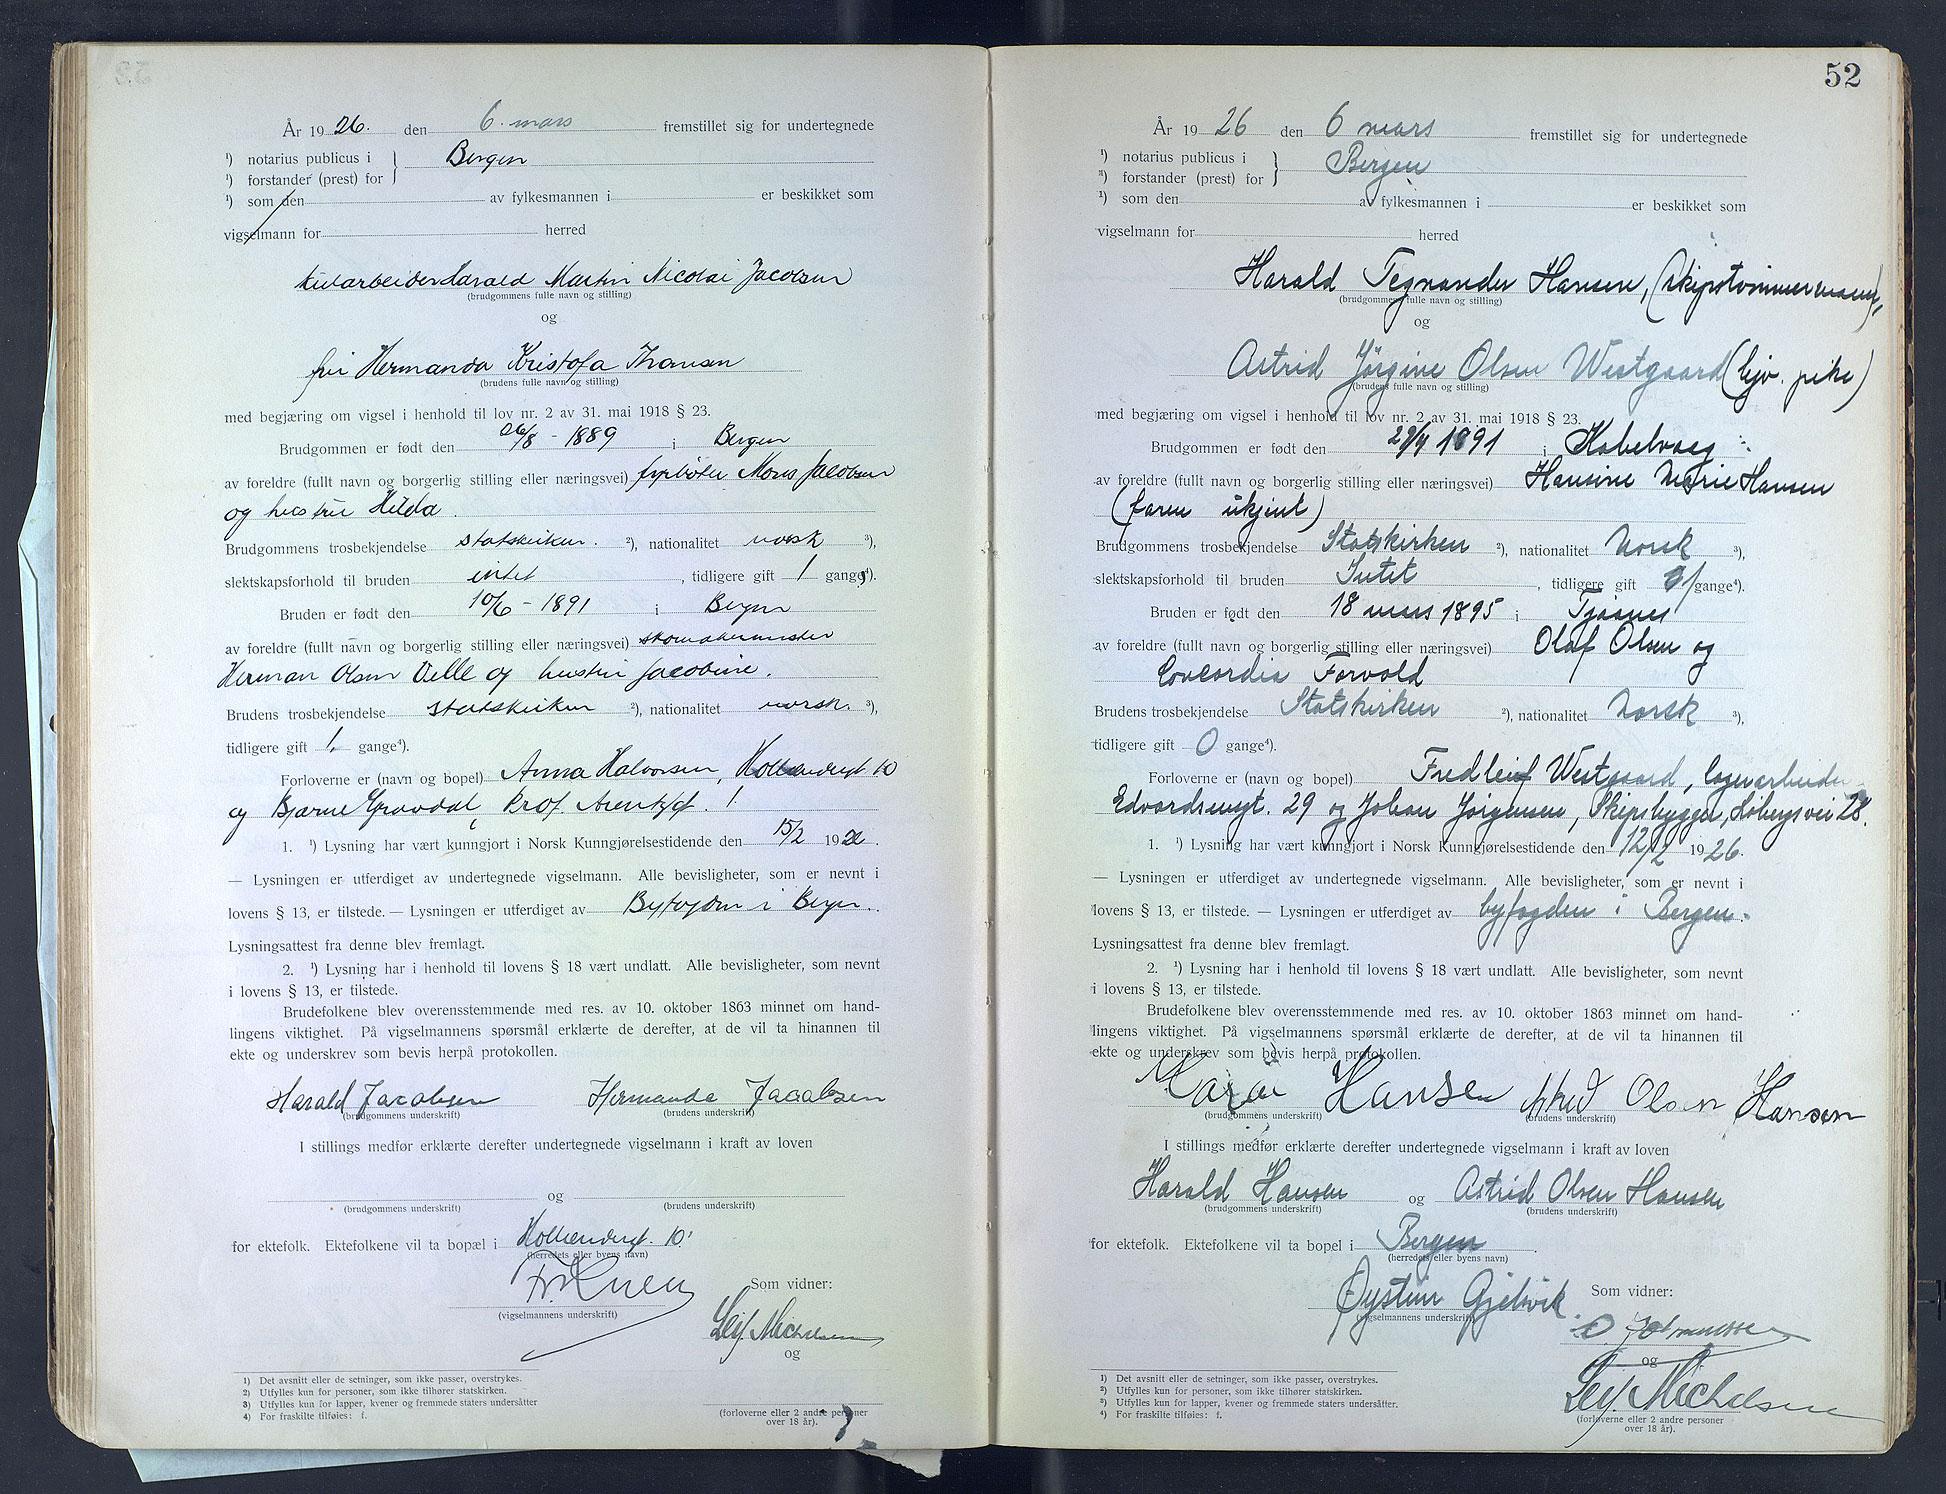 År 19 26. den 6. mars fremstillet sig for undertegnede
¹) notarius publicus i } Bergen
¹) forstander (prest) for
¹) som den av fylkesmannen i er beskikket som
vigselmann for herred
Harald Martin Nicolai Jacobsen
(brudgommens fulle navn og stilling)
og
fru Hermanda Kristofa Thansen
(brudens fulle navn og stilling)
med begjæring om vigsel i henhold til lov nr. 2 av 31. mai 1918 § 23.
Brudgommen er født den 26/8 - 1889 i Bergen
av foreldre (fullt navn og borgerlig stilling eller næringsvei) fyrbøter Mons Jacobsen
og hustru Hilda.
Brudgommens trosbekjendelse statskirken. ²), nationalitet norsk ³),
slektskapsforhold til bruden intet, tidligere gift 1 gange⁴).
Bruden er født den 10/6 - 1891 i Bergen
av foreldre (fullt navn og borgerlig stilling eller næringsvei) skomakermester
Herman Olsen Velle og hustru Jacobine.
Brudens trosbekjendelse statskirken ²), nationalitet norsk. ³),
tidligere gift 1. gange⁴).
Forloverne er (navn og bopel) Anna Halvorsen, Hollendergt. 10
og Bjarne Grovdal, Prof. 1.
1. ¹) Lysning har vært kunngjort i Norsk Kunngjørelsestidende den 15/2 19
— Lysningen er utferdiget av undertegnede vigselmann. Alle bevisligheter, som er nevnt i
lovens § 13, er tilstede. — Lysningen er utferdiget av Byfogden i Bergen.
Lysningsattest fra denne blev fremlagt.
2. ¹) Lysning har i henhold til lovens § 18 vært undlatt. Alle bevisligheter, som nevnt
i lovens § 13, er tilstede.
Brudefolkene blev overensstemmende med res. av 10. oktober 1863 minnet om hand-
lingens viktighet. På vigselmannens spørsmål erklærte de derefter, at de vil ta hinannen til
ekte og underskrev som bevis herpå protokollen.
Harald Jacobsen Hermanda Jacobsen
(brudgommens underskrift) (brudens underskrift)
I stillings medfør erklærte derefter undertegnede vigselmann i kraft av loven
og
(brudgommens underskrift) (brudens underskrift)
for ektefolk. Ektefolkene vil ta bopæl i Hollendergt. 10.
(herredets eller byens navn)
(vigselmannens underskrift)
Som vidner:
Leif Michelsen
og
(forloverne eller 2 andre personer
over 18 år).
1) Det avsnitt eller de setninger, som ikke passer, overstrykes.
2) Utfylles kun for personer, som ikke tilhører statskirken.
3) Utfylles kun for lapper, kvener og fremmede staters undersåtter
4) For fraskilte tilføies: f.
52
År 19 26 den 6 mars fremstillet sig for undertegnede
¹) notarius publicus i } Bergen
¹) forstander (prest) for
¹) som den av fylkesmannen i er beskikket som
vigselmann for herred
Harald Tegnander Hansen, (skipstømmermann),
(brudgommens fulle navn og stilling)
og
Astrid Jørgine Olsen Westgaard (hjv. pike)
(brudens fulle navn og stilling)
med begjæring om vigsel i henhold til lov nr. 2 av 31. mai 1918 § 23.
Brudgommen er født den 29/4 1891 i Kabelvaag
av foreldre (fullt navn og borgerlig stilling eller næringsvei) Hansine Marie Hansen
(faren ukjent)
Brudgommens trosbekjendelse Statskirken ²), nationalitet Norsk ³),
slektskapsforhold til bruden Intet, tidligere gift 1 gange⁴).
Bruden er født den 18 mars 1895 i Tjøanes
av foreldre (fullt navn og borgerlig stilling eller næringsvei) Olaf Olsen og
Concordia Forvold
Brudens trosbekjendelse Statskirken ²), nationalitet Norsk ³),
tidligere gift 0 gange⁴).
Forloverne er (navn og bopel) Fredleif Westgaard, lagerarbeider
Edvardsensgt. 29 og Johan Jørgensen, Skipsbygger, Løbergsvei 28.
1. ¹) Lysning har vært kunngjort i Norsk Kunngjørelsestidende den 12/2 19 26.
— Lysningen er utferdiget av undertegnede vigselmann. Alle bevisligheter, som er nevnt i
lovens § 13, er tilstede. — Lysningen er utferdiget av byfogden i Bergen.
Lysningsattest fra denne blev fremlagt.
2. ¹) Lysning har i henhold til lovens § 18 vært undlatt. Alle bevisligheter, som nevnt
i lovens § 13, er tilstede.
Brudefolkene blev overensstemmende med res. av 10. oktober 1863 minnet om hand-
lingens viktighet. På vigselmannens spørsmål erklærte de derefter, at de vil ta hinannen til
ekte og underskrev som bevis herpå protokollen.
Hansen Olsen Hansen
(brudgommens underskrift) (brudens underskrift)
I stillings medfør erklærte derefter undertegnede vigselmann i kraft av loven
Harald Hansen og Astrid Olsen Hansen
(brudgommens underskrift) (brudens underskrift)
for ektefolk. Ektefolkene vil ta bopel i Bergen.
(herredets eller byens navn)
Øystein Gjelsvik
(vigselmannens underskrift)
Som vidner:
og
Leif Michelsen
(forloverne eller 2 andre personer
over 18 år).
1) Det avsnitt eller de setninger, som ikke passer, overstrykes.
2) Utfylles kun for personer, som ikke tilhører statskirken.
3) Utfylles kun for lapper, kvener og fremmede staters undersåtter.
4) For fraskilte tilføies: f.